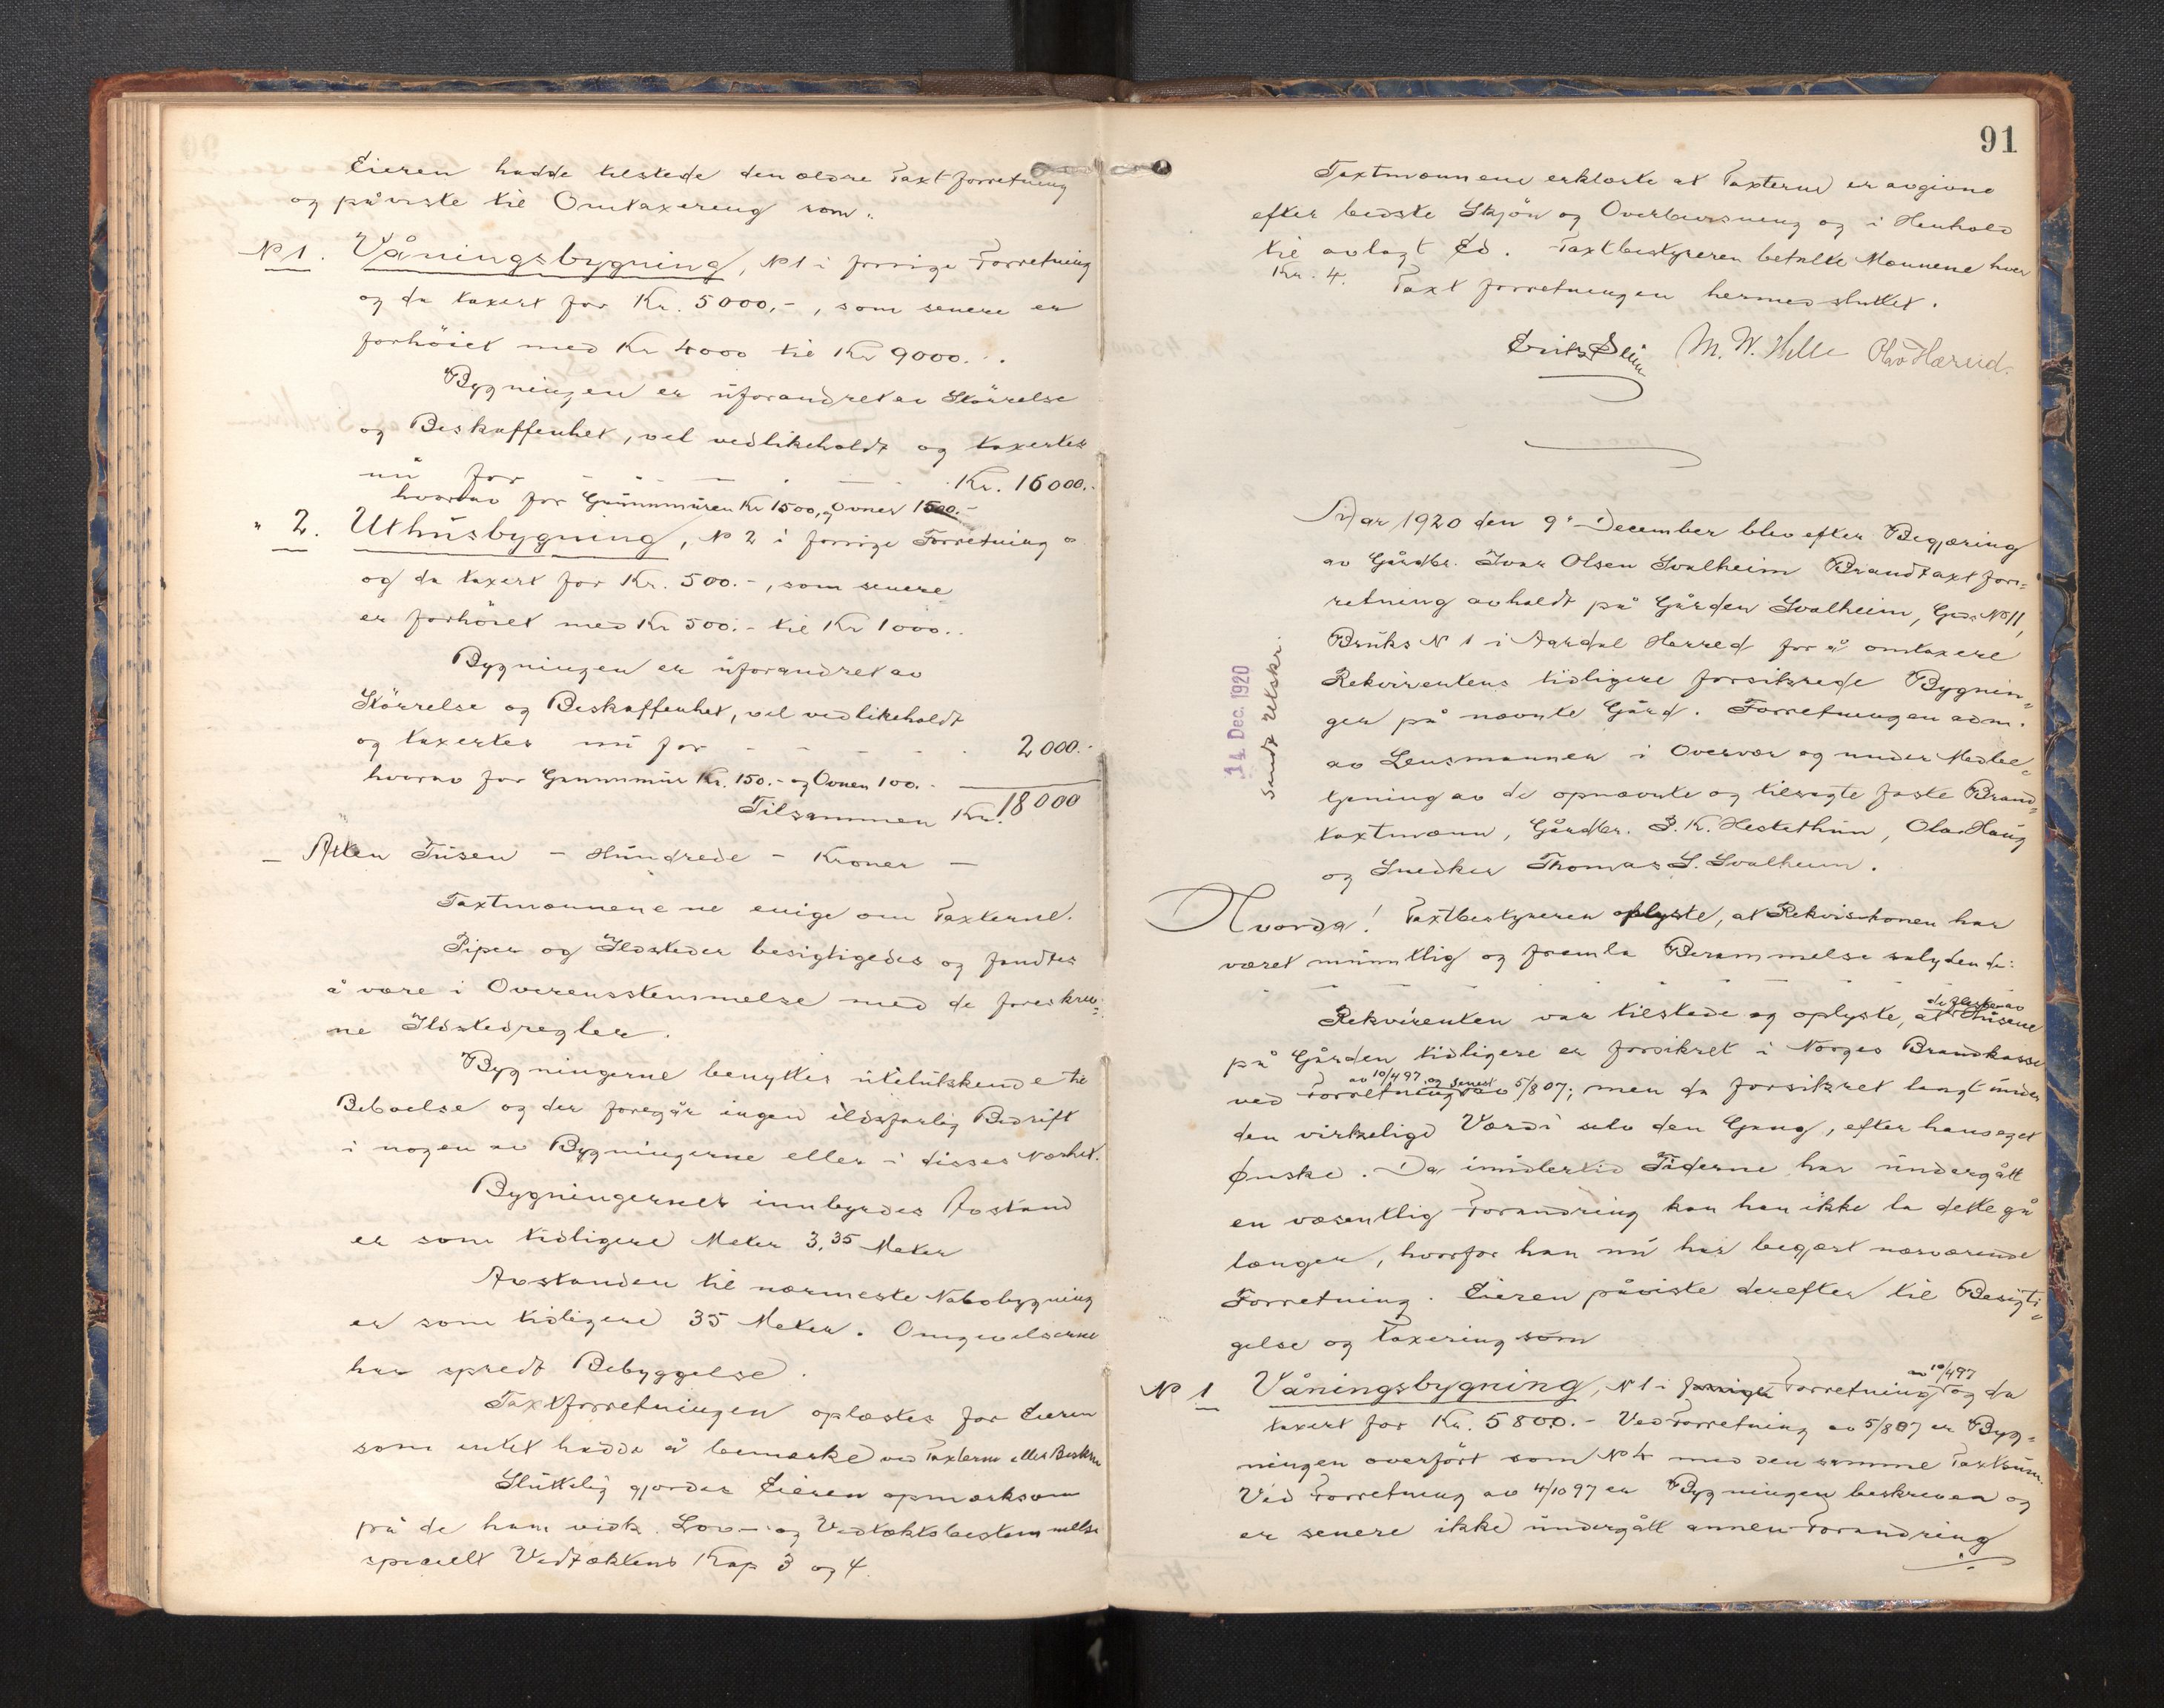 Eieren hadde tilstede den ældre Taxtforretning
og påviste til Omtaxering som:
No 1. Våningsbygning, No 1 i forrige Forretning
og da taxert for Kr. 5000,-, som senere er
forhöiet med Kr 4000 til Kr 9000...
Bygningen er uforandret av Störrelse
og Beskaffenhet, vel vedlikeholdt og taxertes
nu for - - - - - Kr. 16000.-
hvorav for Grunnmuren Kr 1500, og Ovner 1500.-
" 2. Uthusbygning, No 2 i forrige Forretning
og da taxert for Kr. 500.-, som senere
er forhöiet med Kr 500.- til Kr 1000..
Bygningen er uforandret av
Störrelse og Beskaffenhet, vel vedlikeholdt
og taxertes nu for - - - - - 2000.-
hvorav for Grunnmur Kr. 150.- og Ovnen 100.-
Tilsammen Kr. 18000
- Atten Tusen - Hundrede - Kroner -
Taxtmænnene ne enige om Taxterne.
Piper og Ildsteder besigtigedes og fandtes
å være i Overensstemmelse med de foreskrev=
ne Ildstedregler.
Bygningerne benyttes utelukkende til
Beboelse og der foregår ingen ildsfarlig Bedrift
i nogen av Bygningerne eller i disses Nærhet.
Bygningernes innbyrdes Avstand
er som tidligere Meter 3,35 Meter
Avstanden til nærmeste Nabobygning
er som tidligere 35 Meter. Omgivelserne
har spredt Bebyggelse.
Taxtforretningen oplæstes for Eieren
som intet hadde å bemærke ved Taxterne eller Beskr
Sluttelig gjordes Eieren opmærksom
på de ham vedk. Lov- og Vedtæktsbestemmelse
specielt Vedtæktens Kap 3 og 4.
91
Taxtmænnene erklærte at Taxterne er avgivne
efter bedste Skjön og Overbevisning og i Henhold
til avlagt Ed. Taxtbestyreren betalte Mænnene hver
Kr. 4. Taxtforretningen hermed sluttet.
M. W. Helle Olav Hæreid.
Aar 1920 den 9' December blev efter Begjæring
av Gårdbr. Ivar Olsen Svalheim Brandtaxtfor=
retning avholdt på Gården Svalheim, Grds No 11,
Bruks No 1 i Aardal Herred for å omtaxere
Rekvirentens tidligere forsikrede Bygnin=
ger på nævnte Gård. Forretningen adm.
av Lensmannen i Overvær og under Medbe=
tjening av de opnævnte og tilsagte faste Brand=
taxtmænn, Gårdbr. P. K. Hestethun, Ola Haug
og Snedker Thomas S. Svalheim.
14 Dec. 1920
Sendt utskr.
Hvorda! Taxtbestyreren oplyste, at Rekvisitionen har
været munntlig og fremla Berammelse sålydende:
- - - - - - - - - -
Rekvirenten var tilstede og oplyste, at de fleste av Husene
på Gården tidligere er forsikret i Norges Brandkasse
ved Forretning av 10/4 97 og senest av 5/8 07; men da forsikret langt under
den virkelige Værdi selv den Gang, efter hans eget
Ønske. Da imidlertid Tiderne har undergått
en væsentlig Forandring kan han ikke la dette gå
længer, hvorfor han nu har begjært nærværende
Forretning. Eieren påviste derefter til Besigti=
gelse og Taxering som
No 1 Våningsbygning, No 1 i forrige Forretning av 10/4 97 og da
taxert for Kr. 5800.- Ved Forretning av 5/8 07 er Byg=
ningen overfört som No 4 med den samme Taxtsum.
Ved Forretning av 4/10 97 er Bygningen beskreven og
er senere ikke undergått annen Forandring